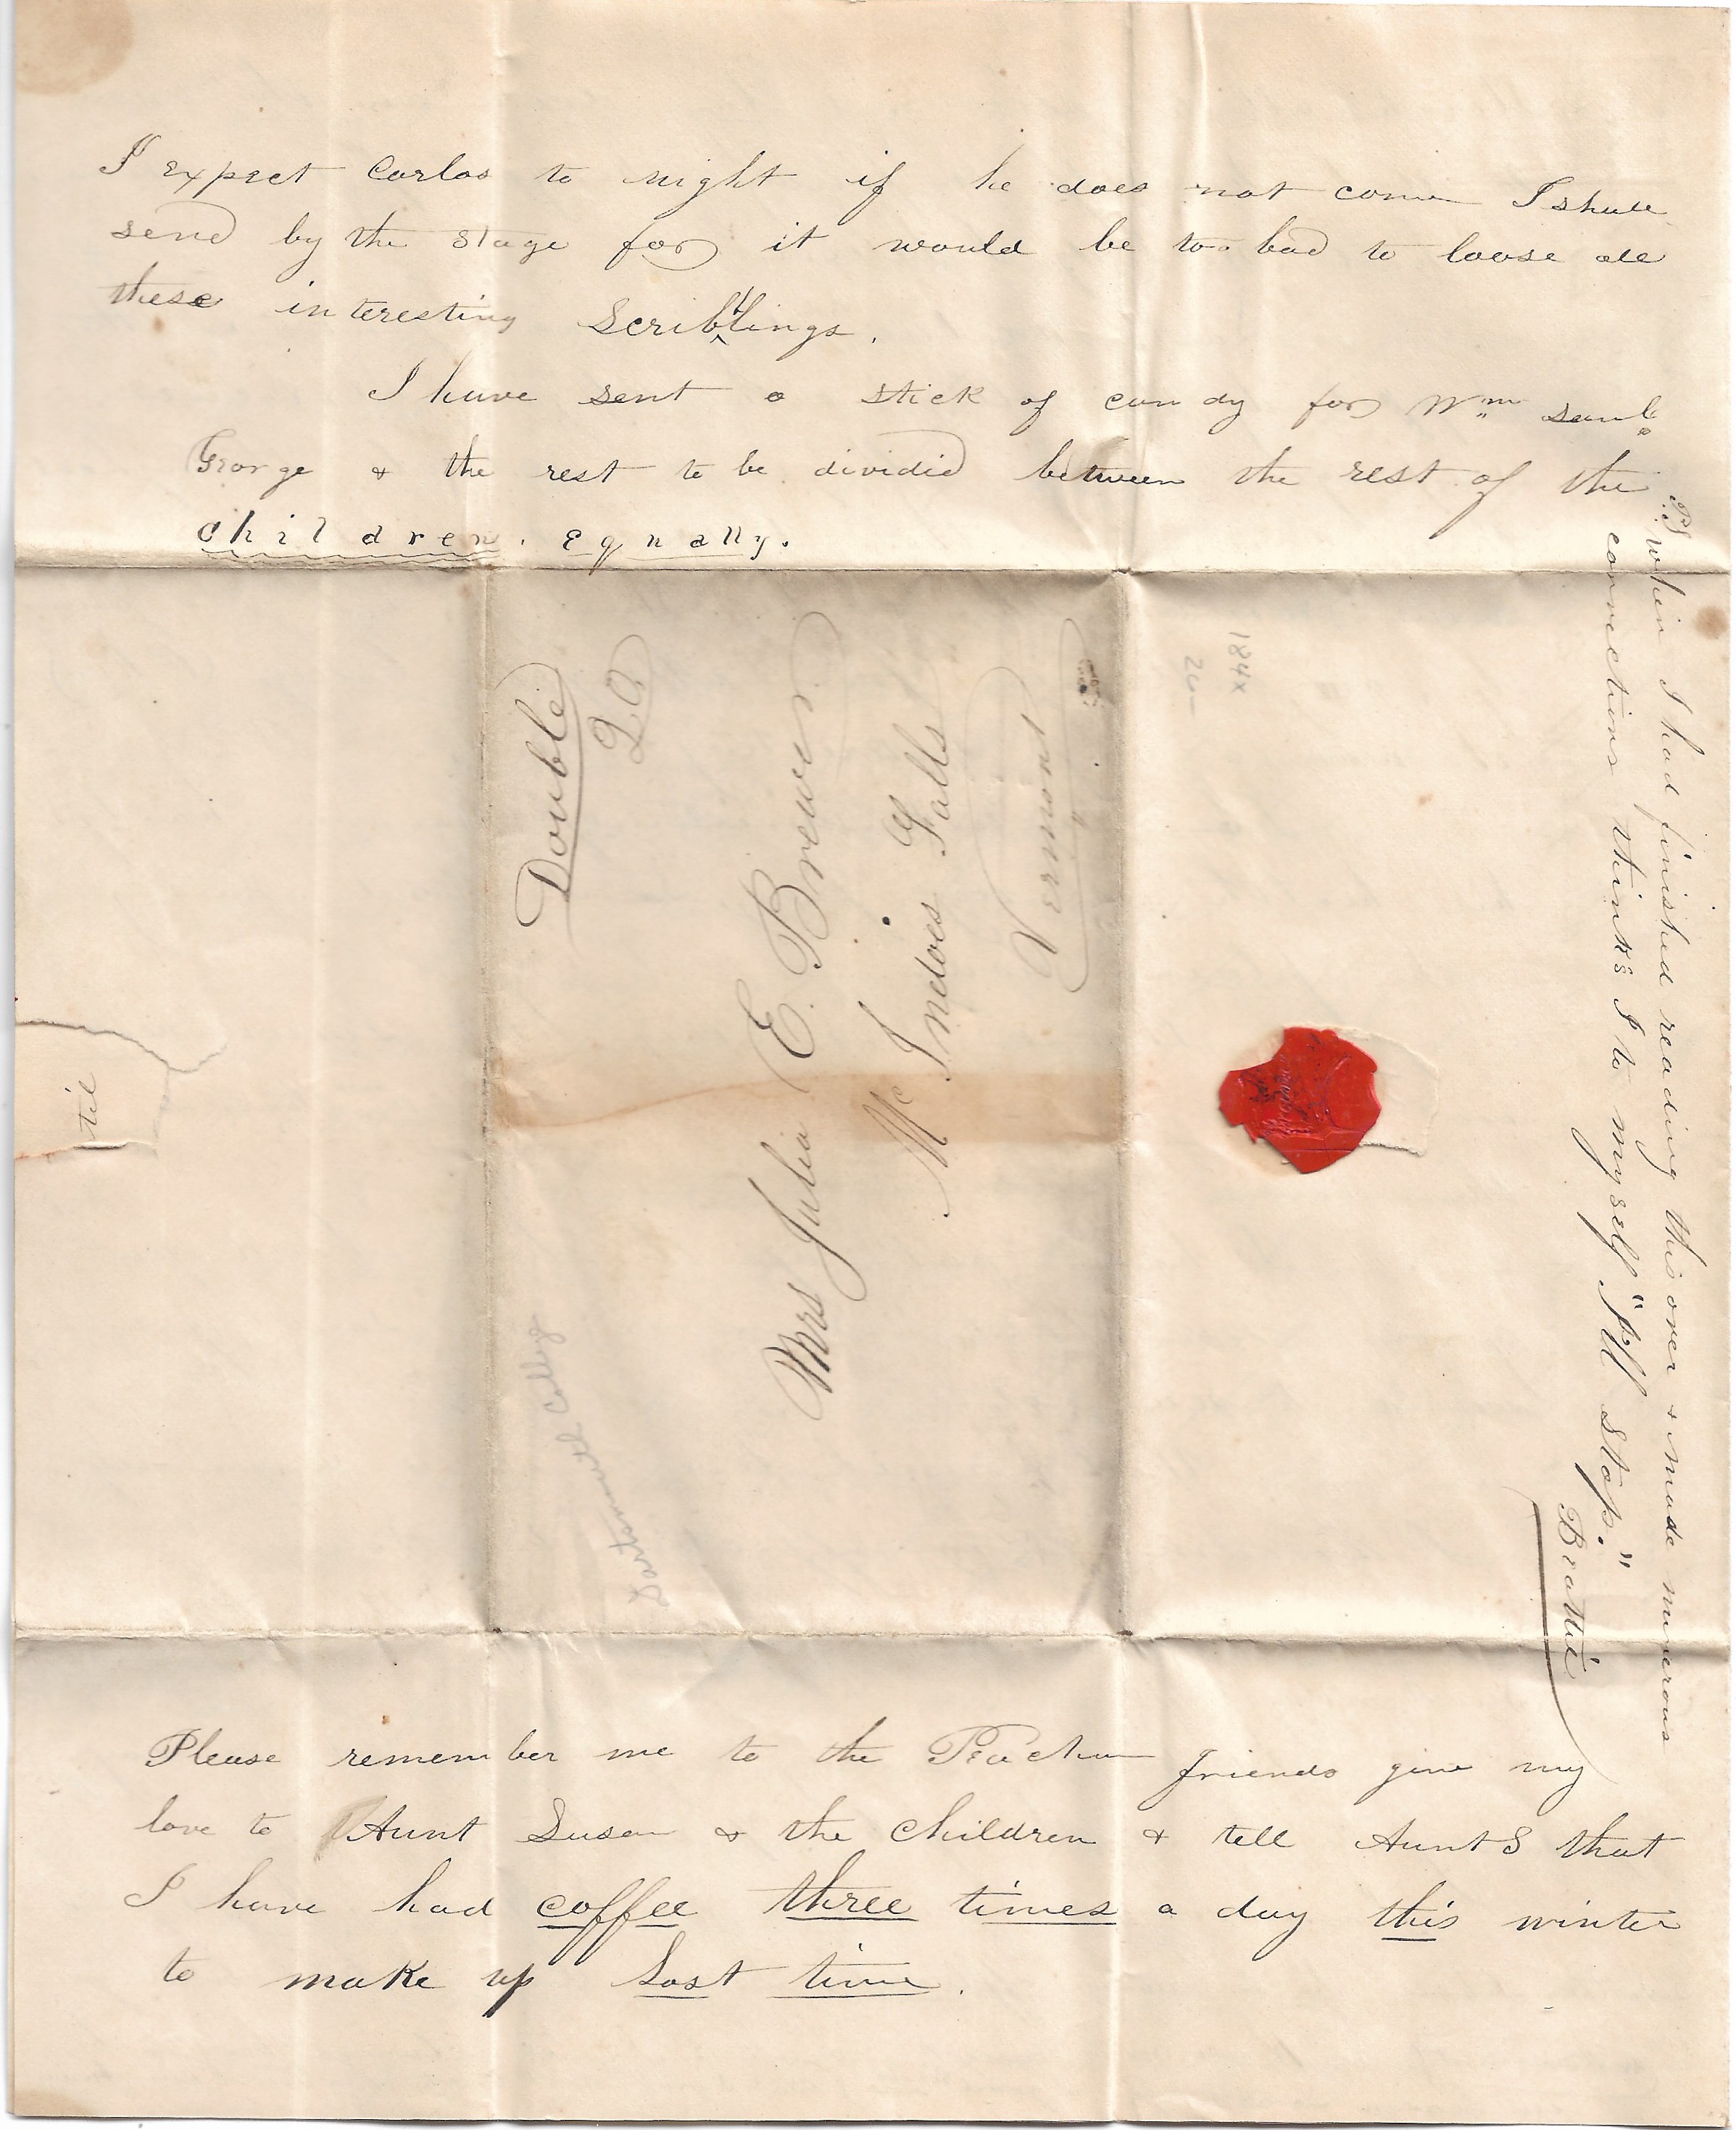 I expect Carlos to night if he does not come I shall
send by the Stage for it would be too bad to loose all
these interesting Scribblings.
I have sent a stick of candy for Wm Saml
George & the rest to be divided between the rest of the
children. Equally.
PS when I had finished reading this over & made numerous
corrections thinks I to myself "I'll stop."
Beattie
Double
20
Mrs Julia E. Brewer
Mc Indoes Falls
Vermont
184x
20-
til
Please remember me to the Peacham friends give my
love to Aunt Susan & the children & tell Aunt S that
I have had coffee three times a day this winter
to make up lost time.